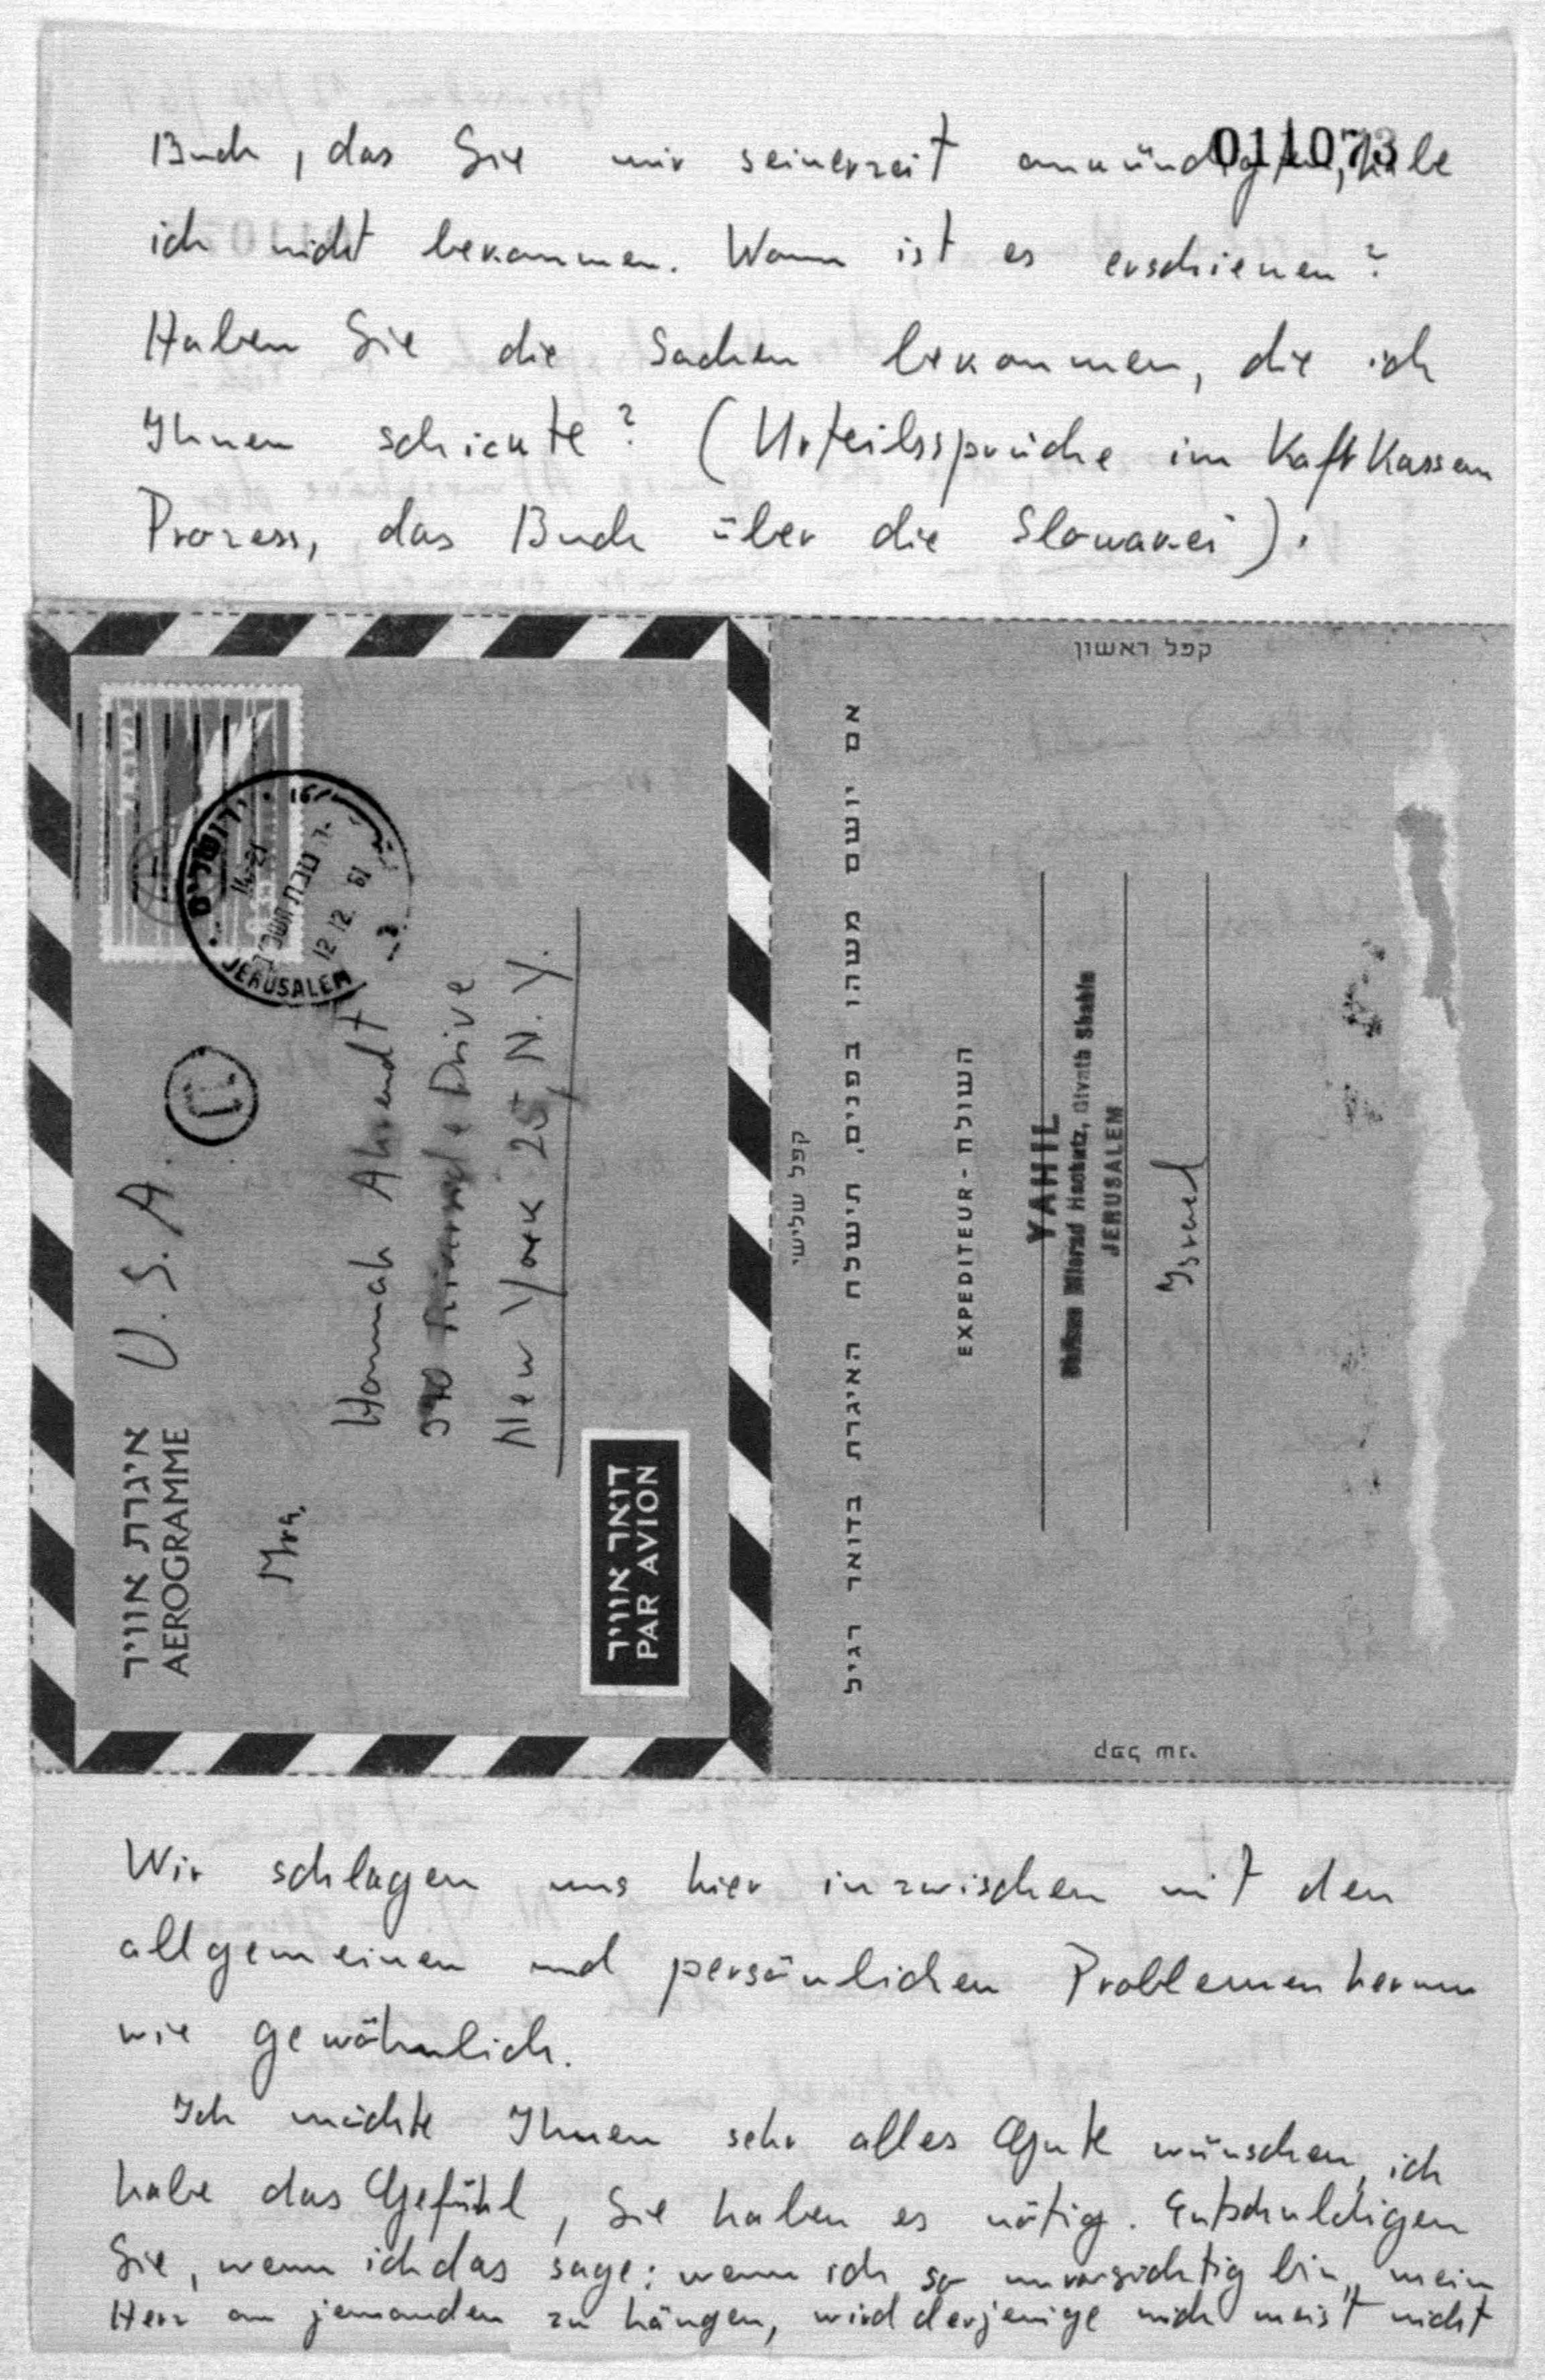 011073
Buch, das Sie mir seinerzeit ankündigten, habe
ich nicht bekommen. Wann ist es erschienen?
Haben Sie die Sachen bekommen, die ich
Ihnen schickte? (Urteilssprüche im Kafr Kassem
Prozess, das Buch über die Slowakei).
איגרת אוויר
AEROGRAMME
U.S.A.
ISRAEL
ירושלים
JERUSALEM
12.12.61
Mrs.
Hannah Ahrendt
370 Riverside Drive
New York 25, N.Y.
דואר אוויר
PAR AVION
קפל ראשון
קפל שלישי
אם יושם משהו בפנים, תישלח האיגרת בדואר רגיל
EXPEDITEUR - השולח
YAHIL
Shikun Misrad Hachutz, Givath Shahin
JERUSALEM
Israel
קפל שני
Wir schlagen uns hier inzwischen mit den
allgemeinen und persönlichen Problemen herum
wie gewöhnlich.
Ich möchte Ihnen sehr alles Gute wünschen, ich
habe das Gefühl, Sie haben es nötig. Entschuldigen
Sie, wenn ich das sage: wenn ich so unvorsichtig bin, mein
Herz an jemanden zu hängen, wird derjenige mich meist nicht